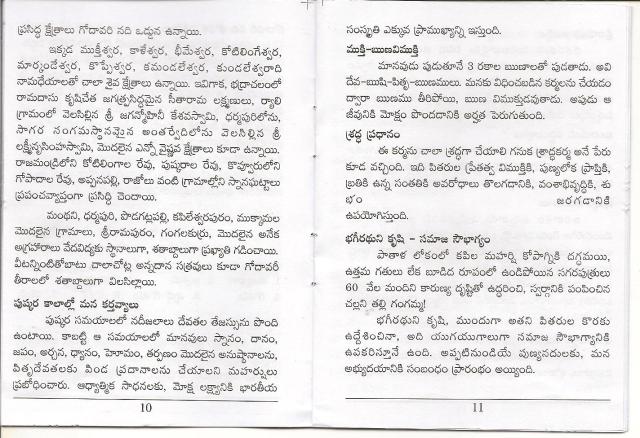 ప్రసిద్ధ క్షేత్రాలు గోదావరి నది ఒడ్డున ఉన్నాయి.
ఇక్కడ ముక్తీశ్వర, కాళేశ్వర, భీమేశ్వర, కోటిలింగేశ్వర,
మార్కండేశ్వర, కొప్పేశ్వర, కమండలేశ్వర, కుండలేశ్వరాది
నామధేయాలతో చాలా శైవ క్షేత్రాలు ఉన్నాయి. ఇవిగాక, భద్రాచలంలో
రామదాసు కృషిచేత జగత్ప్రసిద్ధమైన సీతారామ లక్ష్మణులు, ర్యాలి
గ్రామంలో వెలసిల్లిన శ్రీ జగన్మోహినీ కేశవస్వామి, ధర్మపురిలోను,
సాగర సంగమస్థానమైన అంతర్వేదిలోను వెలసిల్లిన శ్రీ
లక్ష్మీనృసింహస్వామి, మొదలైన ఎన్నో వైష్ణవ క్షేత్రాలు కూడా ఉన్నాయి.
రాజమండ్రిలోని కోటిలింగాల రేవు, పుష్కరాల రేవు, కొవ్వూరులోని
గోపాదాల రేవు, అప్పనపల్లి, రాజోలు వంటి గ్రామాల్లోని స్నానఘట్టాలు
ప్రపంచవ్యాప్తంగా ప్రసిద్ధి చెందాయి.
మంథని, ధర్మపురి, పొడగట్లపల్లి, కపిలేశ్వరపురం, ముక్కామల
మొదలైన గ్రామాలు, శ్రీరామపురం, గంగలకుర్రు, మొదలైన అనేక
అగ్రహారాలు వేదవిద్యకు స్థానాలుగా, శతాబ్దాలుగా ప్రఖ్యాతి గడించాయి.
వీటన్నింటితోబాటు చాలాచోట్ల అన్నదాన సత్రవులు కూడా గోదావరీ
తీరాలలో శతాబ్దాలుగా విలసిల్లాయి.
పుష్కర కాలాల్లో మన కర్తవ్యాలు
పుష్కర సమయాలలో నదీజలాలు దేవతల తేజస్సును పొంది
ఉంటాయి. కాబట్టి ఆ సమయాలలో మానవులు స్నానం, దానం,
జపం, అర్చన, ధ్యానం, హెూమం, తర్పణం మొదలైన అనుష్ఠానాలను,
పితృదేవతలకు పిండ ప్రదానాలను చేయాలని మహర్షులు
ప్రబోధించారు. ఆధ్యాత్మిక సాధనలకు, మోక్ష లక్ష్యానికి భారతీయ
10
సంస్కృతి ఎక్కువ ప్రాముఖ్యాన్ని ఇస్తుంది.
ముక్తి-ఋణవిముక్తి
మానవుడు పుడుతూనే 3 రకాల ఋణాలతో పుడతాడు. అవి
దేవ-ఋషి-పితృ-ఋణములు. మనకు విధించబడిన కర్మలను చేయడం
ద్వారా ఋణము తీరిపోయి, ఋణ విముక్తుడవుతాడు. అపుడు ఆ
జీవునికి మోక్షం పొందడానికి అర్హత పెరుగుతుంది.
శ్రద్ధ ప్రధానం
ఈ కర్మను చాలా శ్రద్ధగా చేయాలి గనుక శ్రాద్ధకర్మ అనే పేరు
కూడ వచ్చింది. ఇది పితరుల ప్రేతత్వ విముక్తికి, పుణ్యలోక ప్రాప్తికి,
బ్రతికి ఉన్న సంతతికి అవరోధాలు తొలగడానికి, వంశాభివృద్ధికి, శు
భం జరగడానికి
ఉపయోగిస్తుంది.
భగీరథుని కృషి - సమాజ సౌభాగ్యం
పాతాళ లోకంలో కపిల మహర్షి కోపాగ్నికి దగ్ధమయి,
ఉత్తమ గతులు లేక బూడిద రూపంలో ఉండిపోయిన సగరపుత్రులు
60 వేల మందిని కారుణ్య దృష్టితో ఉద్ధరించి, స్వర్గానికి పంపించిన
చల్లని తల్లి గంగమ్మ!
భగీరథుని కృషి, ముందుగా అతని పితరుల కొరకు
ఉద్దేశించినా, అది యుగయుగాలుగా సమాజ సౌభాగ్యానికి
ఉపకరిస్తూనే ఉంది. అప్పటినుండియే పుణ్యనదులకు, మన
అభ్యుదయానికి సంబంధం ప్రారంభం అయ్యింది.
11